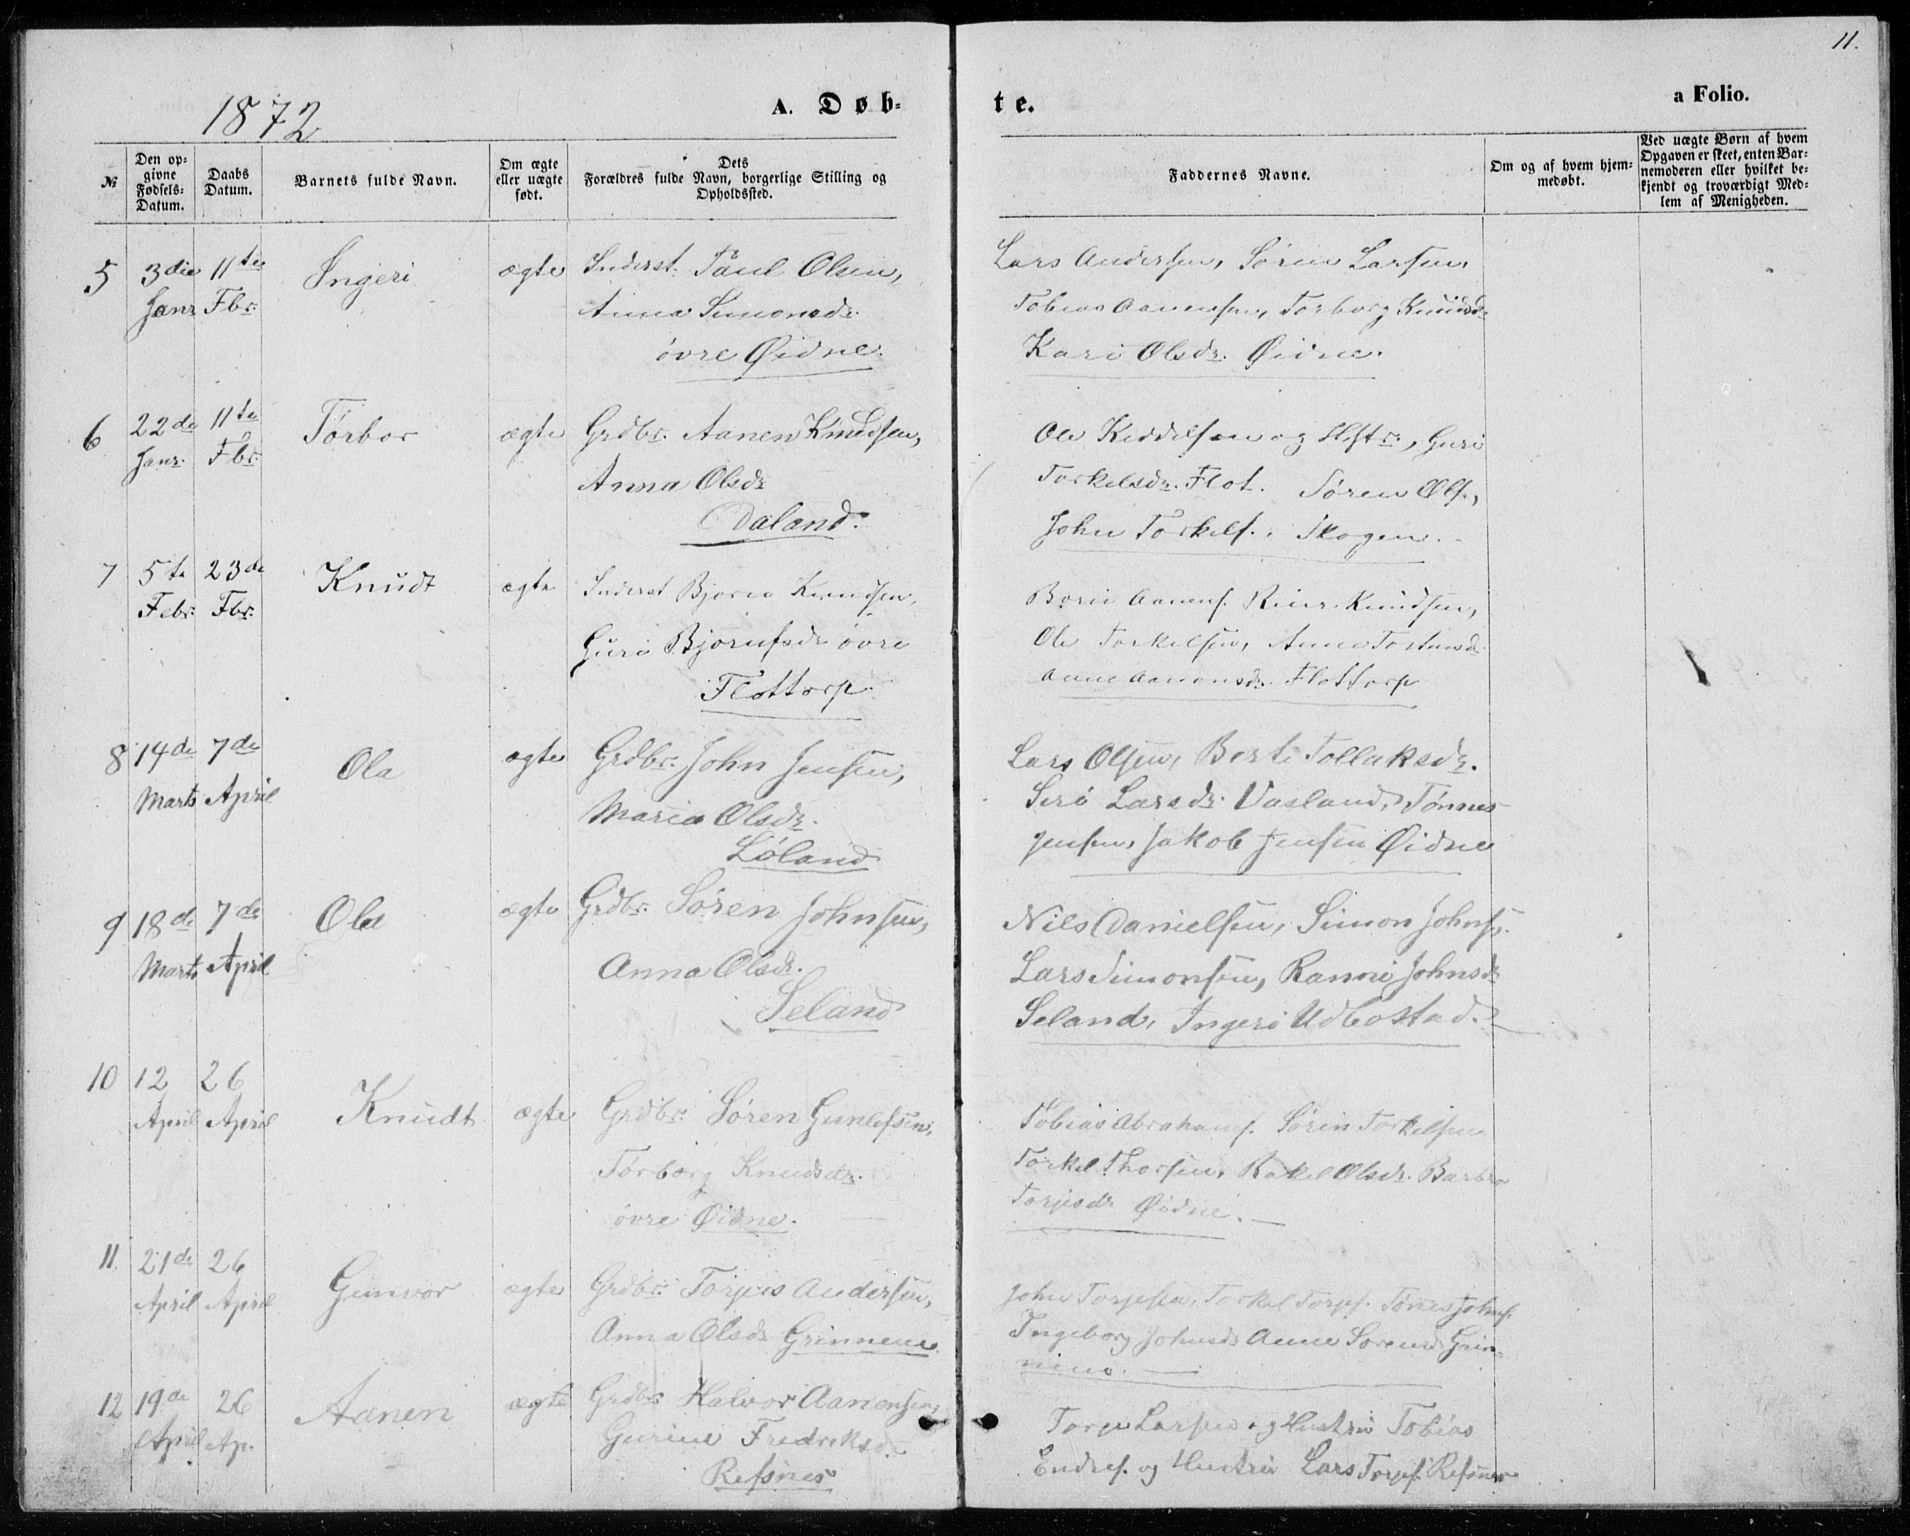 11.
1872
A. Døb-
te.
a Folio.
№
Den op-
givne
Fødsels-
Datum.
Daabs
Datum.
Barnets fulde Navn.
Om ægte
eller uægte
født.
Dets
Forældres fulde Navn, borgerlige Stilling og
Opholdssted.
Faddernes Navne.
Om og af hvem hjem-
medøbt.
Ved uægte Børn af hvem
Opgaven er skeet, enten Bar-
nemoderen eller hvilket be-
kjendt og troværdigt Med-
lem af Menigheden.
5
3die
Janr
11te
Fbr.
Ingeri
ægte
Inderst. Paul Olsen,
Anna Simonsdr.
øvre Øidne.
Lars Andersen, Søren Larsen,
Tobias Aanensen, Torborg Knudsdr
Kari Olsdr. Øidne.
6
22de
Janr.
11te
Fbr.
Tørbor
ægte
Grdbr. Aanen Knudsen,
Anna Olsdr
Daland.
Ole Keddelsen og Hstr., Guri
Torkelsdr. Flot. Søren Ols.,
John Torkels. Skogen.
7
5te
Febr.
23de
Fbr.
Knudt
ægte
Inderst Bjorn Knudsen,
Guri Bjornsdr øvre
Flottorp.
Aanens. Knudsen,
Ole Torkelsen, Anne
Anne Aanonsdr. Flottorp
8
14de
Marts
7de
April
Ola
ægte
Grdbr. John Jensen,
Maria Olsdr.
Løland
Lars Olsen, Berte Tollaksdr.
Siri Larsdr. Vasland, Tønnes
Jensen, Jakob Jensen Øidne
9
18de
Marts
7de
April
Ola
ægte
Grdbr. Søren Johnsen,
Anna Olsdr.
Seland
Nils Danielsen, Simon Johns.
Lars Simonsen, Ranni Johnsdr
Seland, Ingeri Udbostad.
10
12
April
26
April
Knudt
ægte
Grdbr. Søren Gunlefsen,
Torborg Knudsdr.
øvre Øidne.
Tobias Abrahams. Søren Torkelsen
Torkel Thorsen, Rakel Olsdr. Barbro
Torjusdr. Øidne.
11.
21de
April
26
April
Gunvor
ægte
Grdbr. Torjus Andersen,
Anna Olsdr Grinnene
John Torjusen, Torkel Torjs. Tønes Johns.
Ingeborg Johnsdr Anne Sørensdr Grin-
nine.
12
19de
April
26
Ap.
Aanen
ægte
Grdbr. Halvor Aanonsen,
Gurine Fredriksdr
Refsnes
Torje Larsen og Hustru Tobias
Endres. og Hustru Lars Torjes. Refsnes